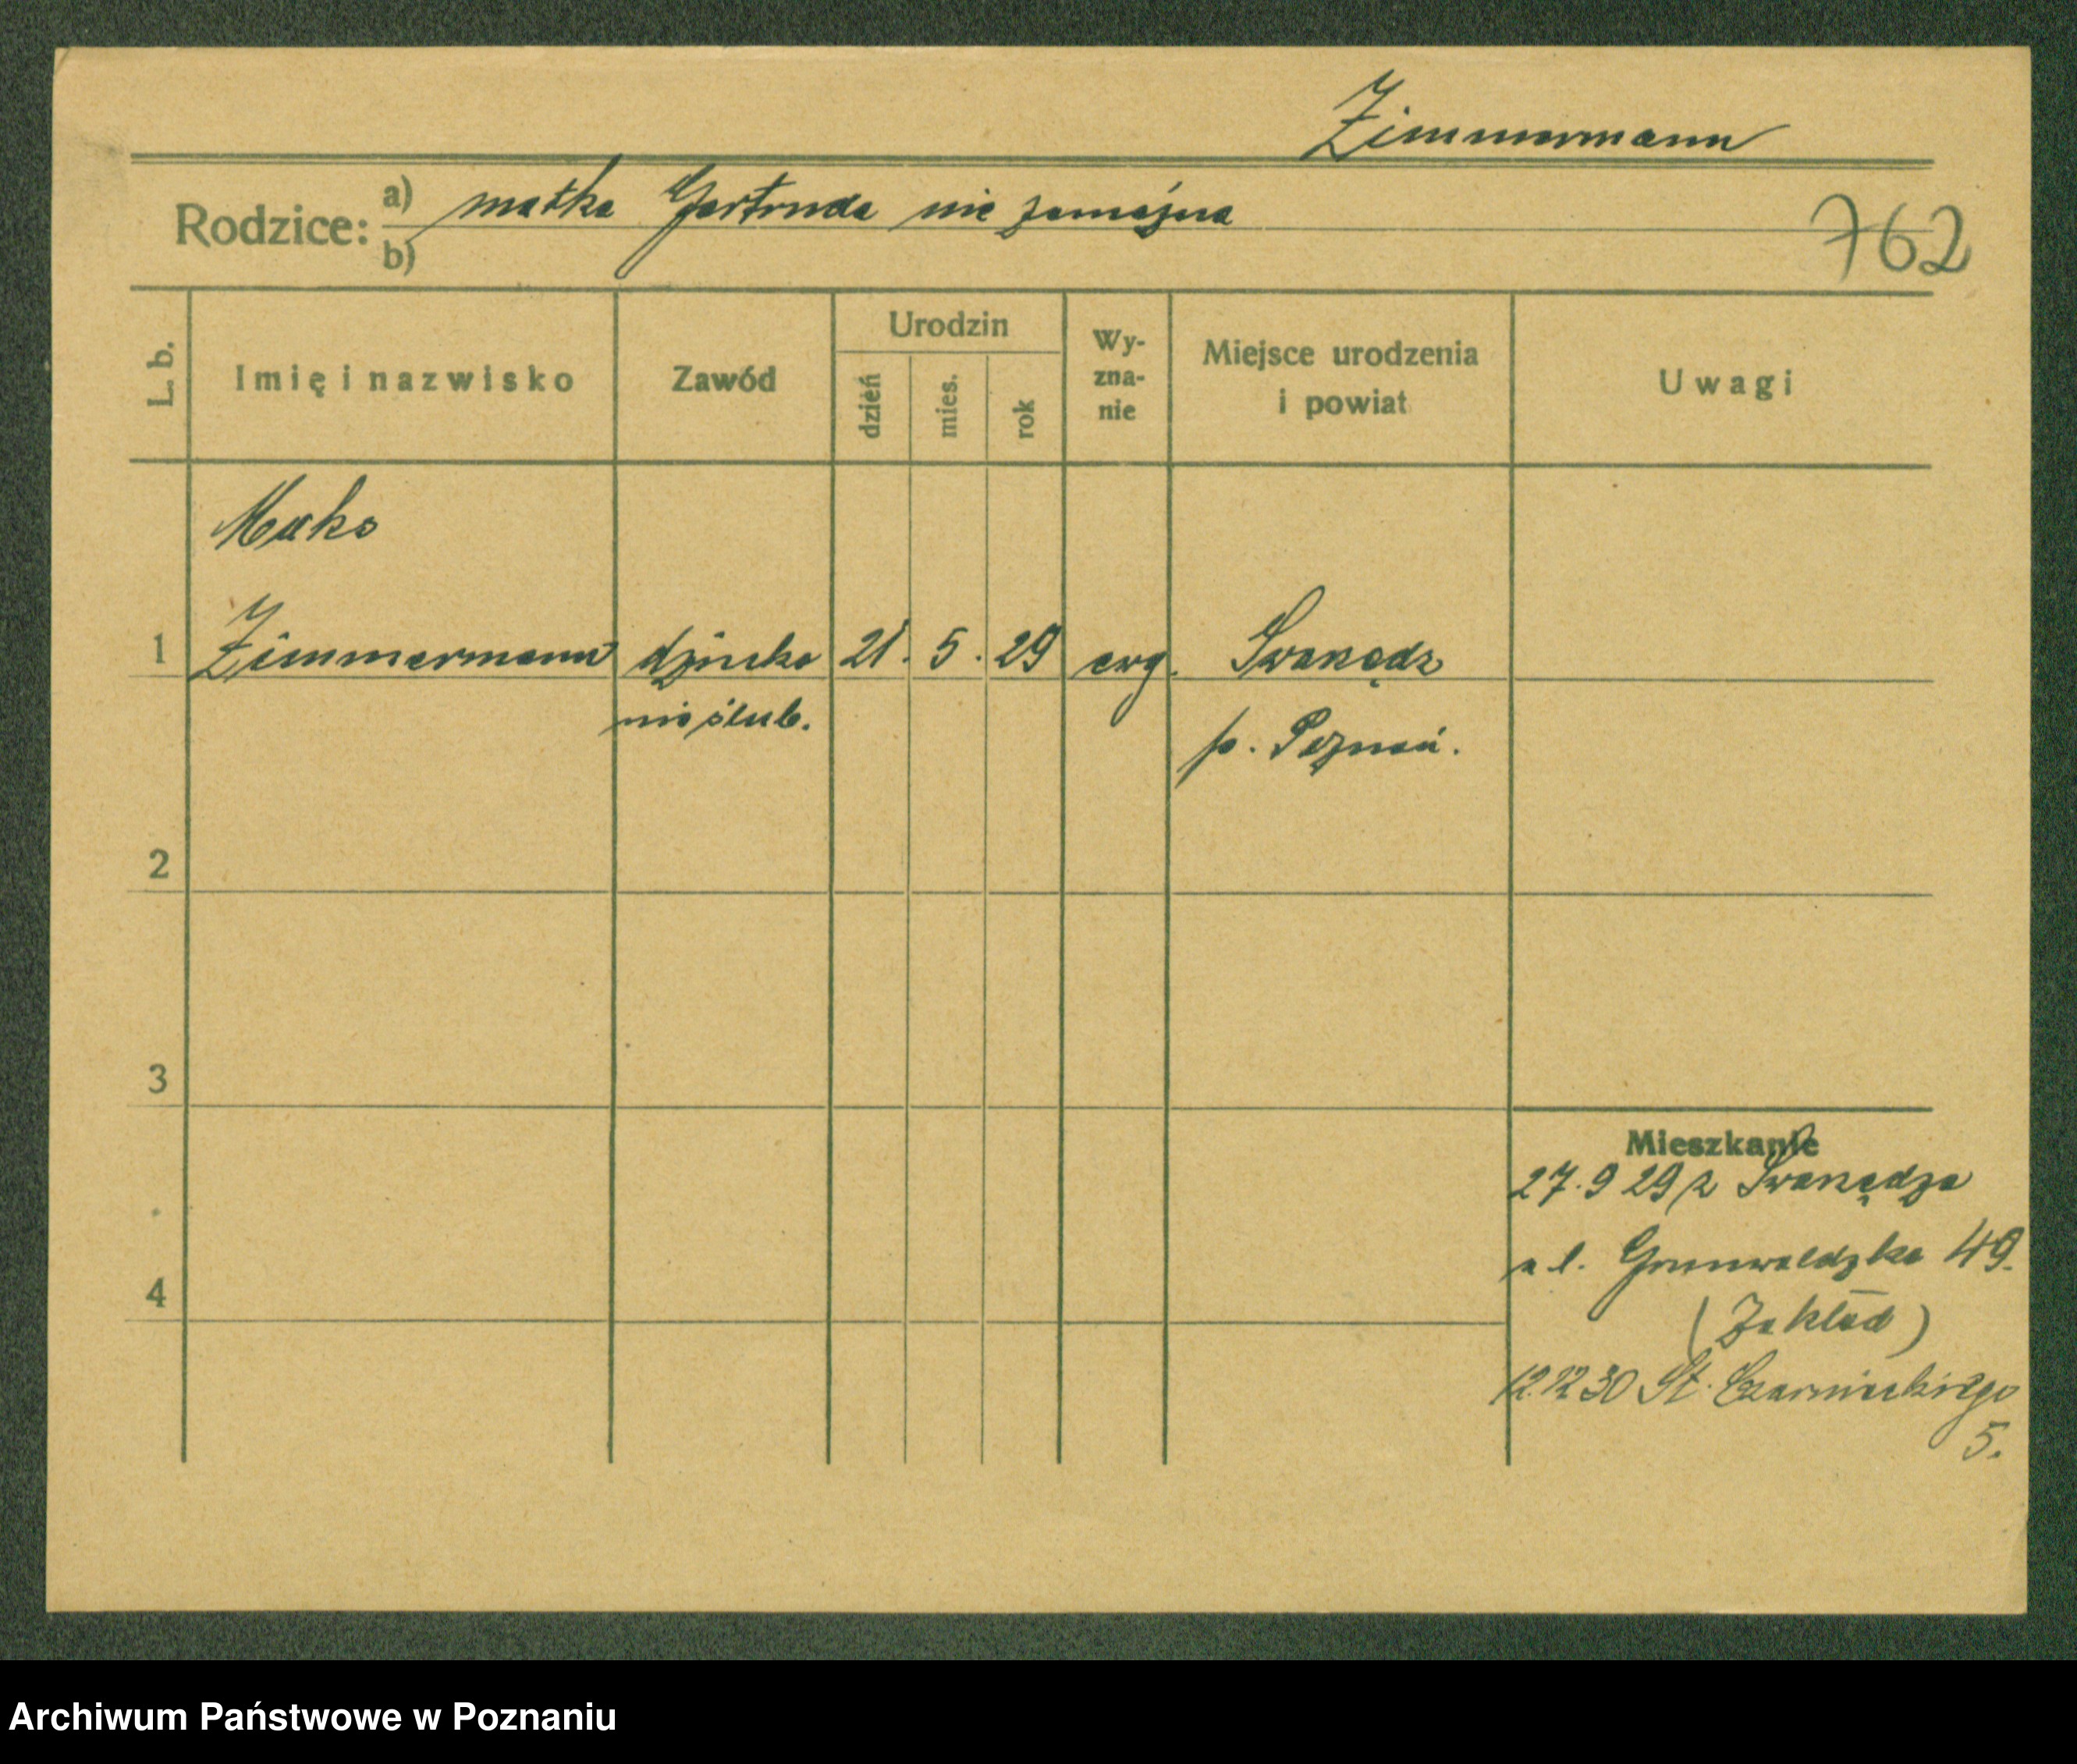 Zimmermann
Rodzice: a) matka Gertruda nie zamężna
b)
762
L. b.
Imię i nazwisko
Zawód
Urodzin
dzień
mies.
rok
Wy-
zna-
nie
Miejsce urodzenia
i powiat
Uwagi
1 Zimmermann dziecko 21. 5. 29 ewg. Swarzędz
nieślub.
p. Poznań.
2
3
4
Mieszkanie
27.9 29 z Swarzędza
ul. Grunwaldzka 49.
(Zakład)
12.12 30 St. Czarnieckiego
5.
Archiwum Państwowe w Poznaniu